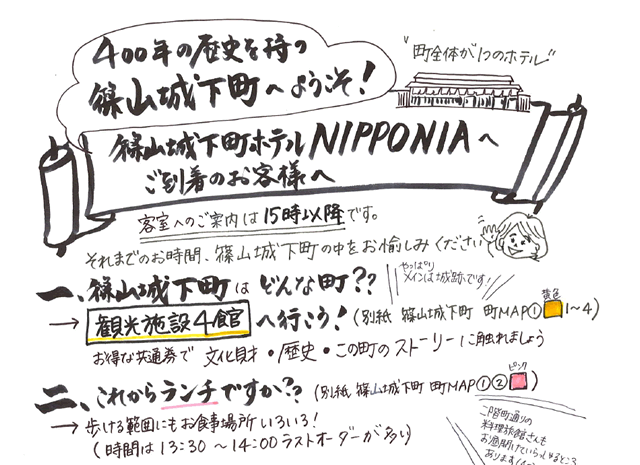 400年の歴史を持つ
篠山城下町へようこそ!
"町全体が1つのホテル"
篠山城下町ホテルNIPPONIAへ
ご到着のお客様へ
客室へのご案内は15時以降です。
それまでのお時間、篠山城下町の中をお愉しみください
やっぱり
メインは城跡です!
一、篠山城下町はどんな町??
→ 観光施設4館へ行こう!(別紙 篠山城下町 町MAP① 黄色 1~4)
お得な共通券で 文化財・歴史・この町のストーリーに触れましょう
二、これからランチですか??(別紙 篠山城下町 町MAP①② ピンク )
→ 歩ける範囲にもお食事場所いろいろ!
(時間は13:30~14:00ラストオーダーが多い)
二階町通りの
料理旅館さんも
お昼開けていらっしゃるところ
あります